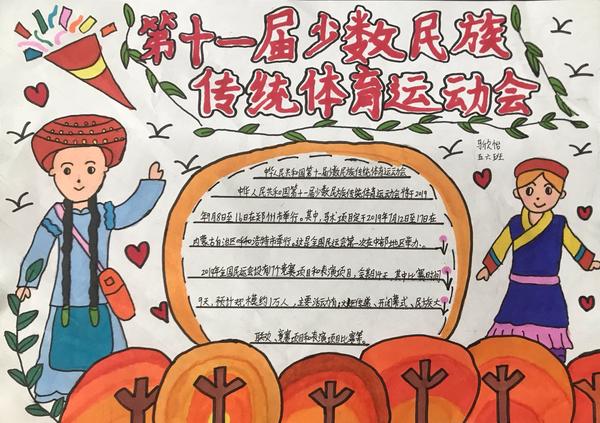 第十一届少数民族
传统体育运动会
五六班
中华人民共和国第十一届少数民族传统体育运动会
中华人民共和国第十一届少数民族传统体育运动会于2019
年9月8日至16日在郑州市举行。其中,马术项目定于2019年7月12日至17日在
内蒙古自治区呼和浩特市举行。这是全国民运会第一次在中部地区举办。
2019年全国民运会设有17个竞赛项目和表演项目,会期天。其中比赛时间
9天,预计规模约1万人,主要活动有:火炬传递、开闭幕式、民族大
联欢、竞赛项目和表演项目比赛等。